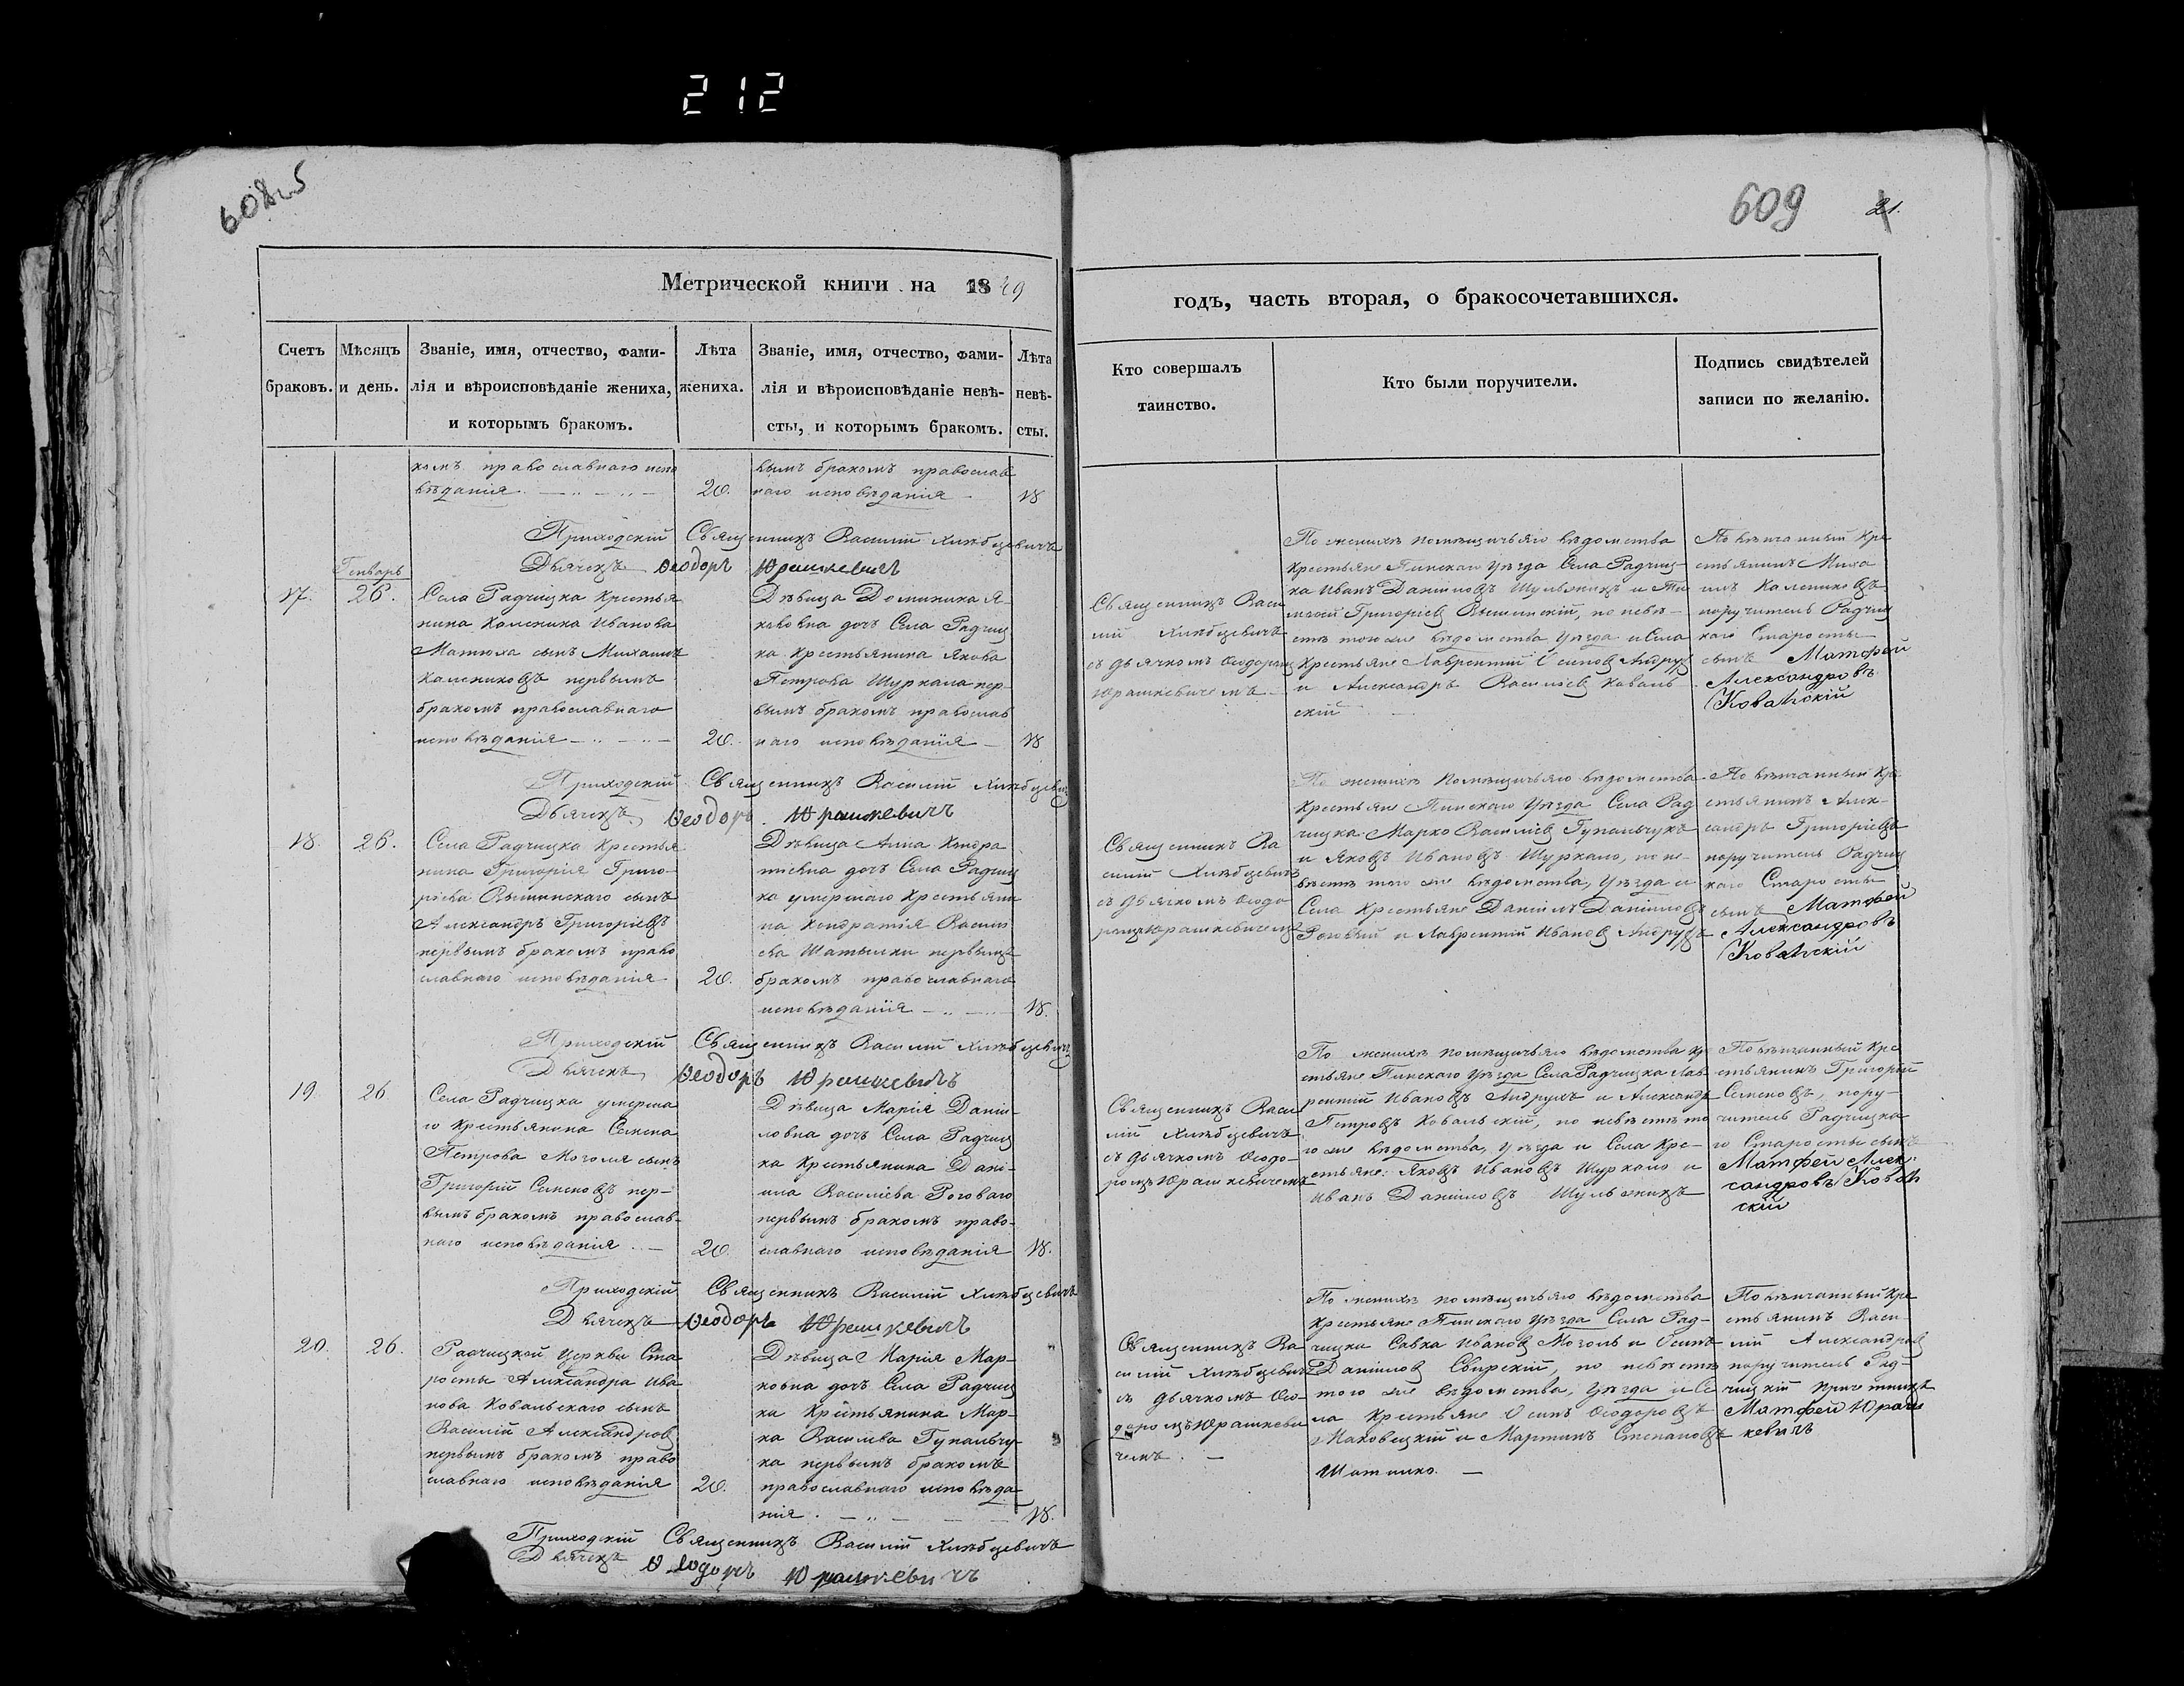 212
609
21.
Метрической книги на 1849
годъ, часть вторая, о бракосочетавшихся.
Счетъ браковъ.
Мѣсяцъ и день.
Званіе, имя, отчество, фами-
лія и вѣроисповѣданіе жениха,
и которымъ бракомъ.
Лѣта
жениха.
Званіе, имя, отчество, фами-
лія и вѣроисповѣданіе невѣ-
сты, и которымъ бракомъ.
Лѣта
невѣ-
сты.
Кто совершалъ
таинство.
Кто были поручители.
Подпись свидѣтелей
записи по желанію.
комъ православнаго испо
вѣданія
20.
вымъ бракомъ православ
наго исповѣданія
18
Приходскій Священникъ Василій Хлѣбцевичъ
Дьячекъ Ѳеодоръ Юрашкевичъ
17.
Генварь
26.
Села Радчицка крестья
нина Каленика Иванова
Матюха сынъ Михаилъ
Калениковъ первымъ
бракомъ православнаго
исповѣданія
20.
Дѣвица Доминика Я-
кововна дочь Села Радчиц
ка крестьянина Якова
Петрова Шуркала пер-
вымъ бракомъ православ
наго исповѣданія
18
Священникъ Васи
лій Хлѣбцевичъ
съ дьячкомъ Ѳеодоромъ
Юрашкевичемъ
По женихѣ помѣщичьяго вѣдомства
крестьяне Пинскаго уѣзда Села Радчиц-
ка Иванъ Даніиловъ Шульжикъ и Ти
моѳей Григоріевъ Вышинскій, по невѣ-
стѣ того же вѣдомства, уѣзда и Села
крестьяне Лаврентій Осиповъ Андрухъ
и Александръ Василіевъ Коваль
скій
Повѣнчанный кре
стьянинъ Миха
илъ Калениковъ
поручитель Радчиц
каго Старосты
сынъ Матфей
Александровъ
Ковальскій
Приходскій Священникъ Василій Хлѣбцевичъ
Дьячекъ Ѳеодоръ Юрашкевичъ
18.
26.
Села Радчицка крестья
нина Григорія Григо-
ріева Вышинскаго сынъ
Александръ Григоріевъ
первымъ бракомъ право
славнаго исповѣданія
20.
Дѣвица Анна Кондра
тіевна дочь Села Радчиц
ка умершаго крестьяни
на Кондратія Васили
ева Шатыlки первымъ
бракомъ православнаго
исповѣданія
18.
Священникъ Ва
силій Хлѣбцевичъ
съ дьячкомъ Ѳеодо
ромъ Юрашкевичемъ
По женихѣ помѣщичьяго вѣдомства
крестьяне Пинскаго уѣзда Села Рад
чицка Марко Василіевъ Гупальчукъ
и Яковъ Ивановъ Шуркало, по не-
вѣстѣ того же вѣдомства, уѣзда и
Села крестьяне Даніилъ Даніиловъ
Роговый и Лаврентій Ивановъ Андрухъ
Повѣнчанный кре
стьянинъ Алек-
сандръ Григоріевъ
поручитель Радчиц
каго Старосты
сынъ Матфей
Александровъ
Ковальскій
Приходскій Священникъ Василій Хлѣбцевичъ
Дьячекъ Ѳеодоръ Юрашкевичъ
19
26
Села Радчицка умерша
го крестьянина Семена
Петрова Моголя сынъ
Григорій Семеновъ пер-
вымъ бракомъ православ-
наго исповѣданія
20.
Дѣвица Марія Даніи-
ловна дочь Села Радчиц
ка крестьянина Дані-
ила Василіева Роговаго
первымъ бракомъ право-
славнаго исповѣданія
18.
Священникъ Васи
лій Хлѣбцевичъ
съ дьячкомъ Ѳеодо-
ромъ Юрашкевичемъ
По женихѣ помѣщичьяго вѣдомства кре
стьяне Пинскаго уѣзда Села Радчицка Лав-
рентій Ивановъ Андрухъ и Александръ
Петровъ Ковальскій, по невѣстѣ то
го же вѣдомства, уѣзда и Села кре-
стьяне: Яковъ Ивановъ Шуркало и
Иванъ Даніиловъ Шульжикъ
Повѣнчанный кре
стьянинъ Григорій
Семеновъ, пору-
читель Радчицка
го Старосты сынъ
Матфей Алек-
сандровъ Коваль
скій
Приходскій Священникъ Василій Хлѣбцевичъ
Дьячекъ Ѳеодоръ Юрашкевичъ
20.
26.
Радчицкой Церкви Ста
росты Александра Ива
нова Ковальскаго сынъ
Василій Александровъ
первымъ бракомъ право
славнаго исповѣданія
20.
Дѣвица Марія Мар-
ковна дочь Села Радчиц
ка крестьянина Мар-
ка Василіева Гупальчу-
ка первымъ бракомъ
православнаго исповѣда
нія.
18.
Священникъ Ва
силій Хлѣбцевичъ
съ дьячкомъ Ѳео-
доромъ Юрашкеви
чемъ.
По женихѣ помѣщичьяго вѣдомства
крестьяне Пинскаго уѣзда Села Рад-
чицка Савка Ивановъ Моголь и Осипъ
Даніиловъ Свирскій, по невѣстѣ
того же вѣдомства, уѣзда и Се
ла крестьяне Осипъ Ѳеодоровъ
Маковецкій и Мартинъ Степановъ
Шатилко.
Повѣнчанный кре
стьянинъ Васи-
лій Александровъ
поручитель Рад-
чицкій причетникъ
Матфей Юраш
кевичъ
Приходскій Священникъ Василій Хлѣбцевичъ
Дьячекъ Ѳеодоръ Юрашкевичъ